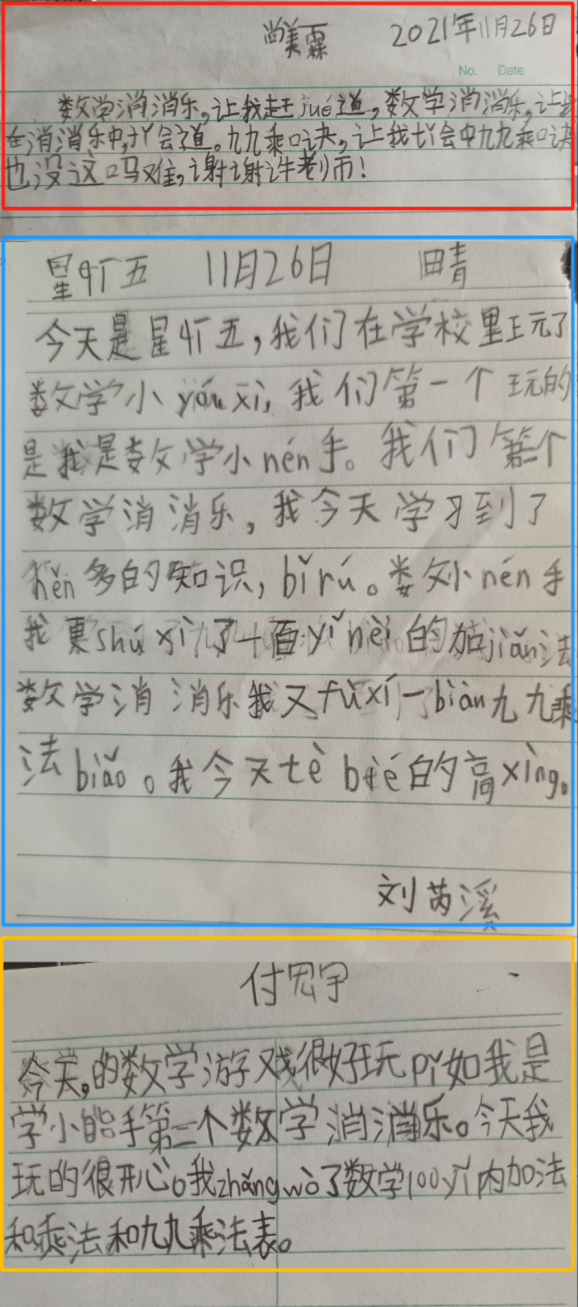 尚美霖 2021年11月26日
No. Date
数学消消乐,让我 jué道,数学消消乐,让
在消消乐中,才会道。九九乘口诀,让我才会中九九乘口诀
也没这吗难,谢谢许老师!
星期五 11月26日 晴
今天是星期五,我们在学校里玩了
数学小yóu xì,我们第一个玩的
是我是数学小nén手。我们第个
数学消消乐,我今天学习到了
hěn多的知识,bǐ rú。数学小nén手
我更shú xi了一百yǐ nèi的加jiǎn法
数学消消乐我又fù xí一biàn九九乘
法biǎo。我今天tè bié的高xìng。
刘芮溪
付宏宇
今天,的数学游戏很好玩pǐ如我是
学小能手第二个数学消消乐。今天我
玩的很开心。我zhǎng wò了数学100以内加法
和乘法和九九乘法表。